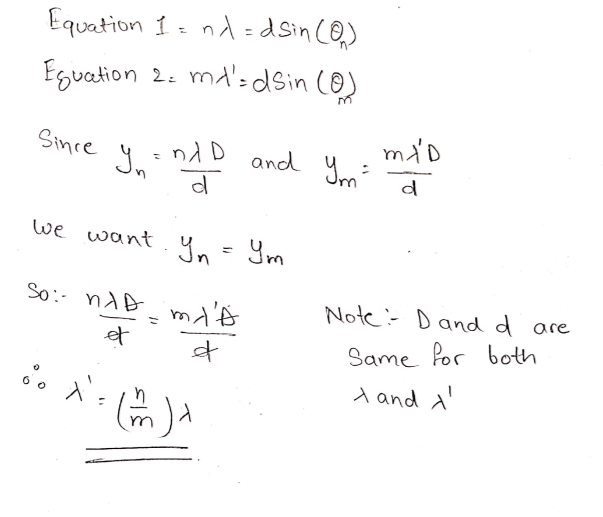 Equation 1 = nλ = dSin(θₙ)
Equation 2 = mλ' = dSin(θₘ)
Since yₙ = nλD/d and yₘ = mλ'D/d
We want yₙ = yₘ
So:- nλD/d = mλ'D/d
Note:- D and d are
Same for both
λ and λ'
∴ λ' = (n/m)λ